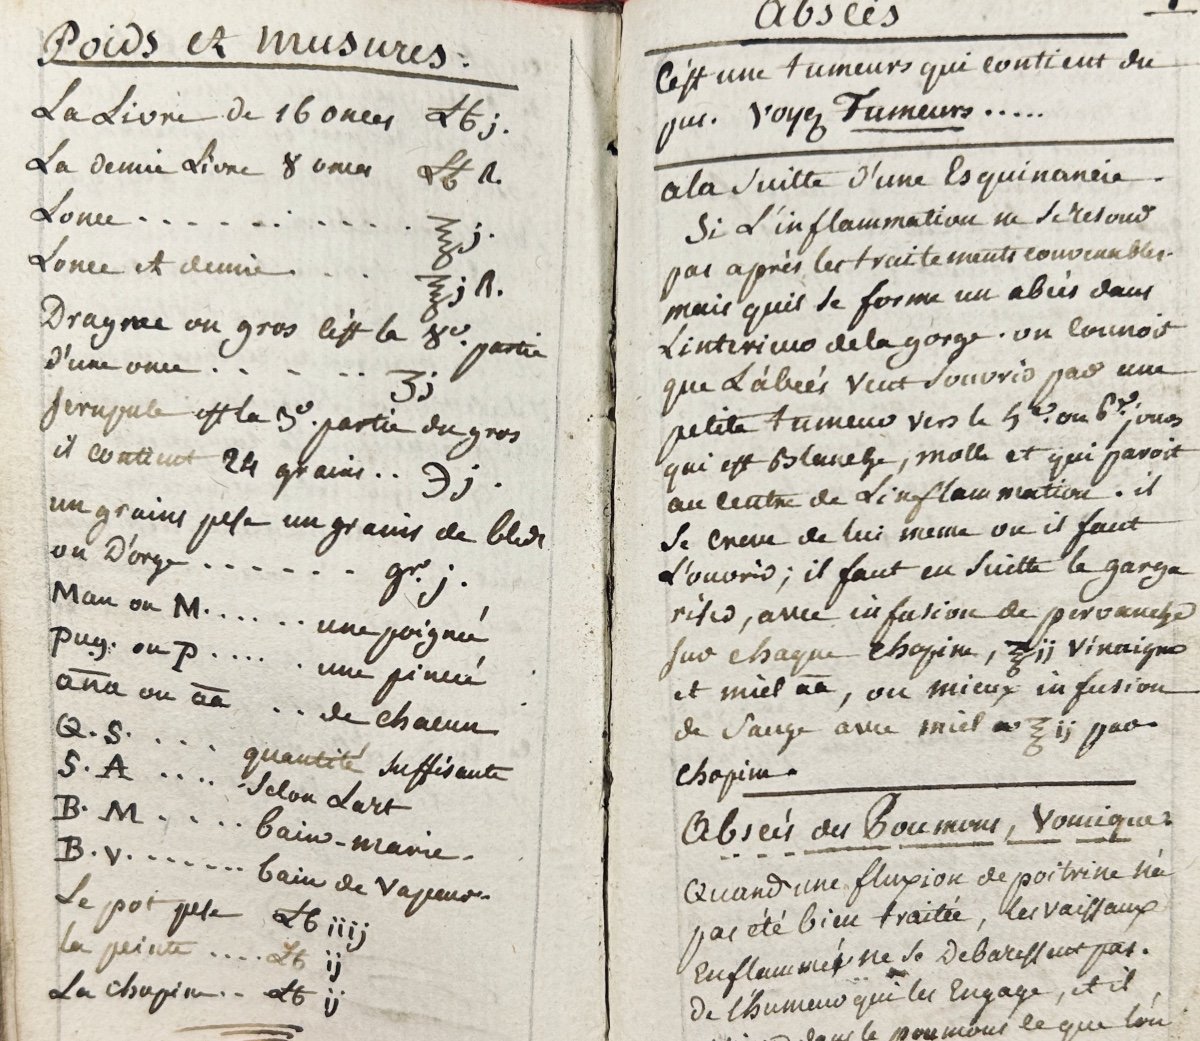 Poids et musures.
La Livre de 16 onces ℔ j.
La demie Livre 8 onces ℔ ß.
Lonce . . . . . . . . . . ℥ j.
Lonce et demie . . . ℥ j ß.
Dragme ou gros c'est la 8e. partie
d'une once . . . . . . ʒ j
scrupule est la 3e. partie du gros
il contient 24 grains . . ℈ j.
un grains pese un grains de bled
ou D'orge . . . . . . . gr. j.
Man ou M. . . . . . . une poignée
pug. ou p. . . . . . une pincée
ana ou aa . . de chacun
Q. S. . . . . quantité suffisante
S. A . . . . Selon Lart
B. M . . . . . bain-marie.
B. V. . . . . . . . bain de vapeur.
Le pot pese ℔ iiij
la peinte . . . . ℔ ij
La chopine . . ℔ ij
Abscés
C'est une tumeurs qui contient du
pus. Voyez Tumeurs . . . . .
a la Suitte d'une Esquinancie.
Si L'inflammation ne Se resoud
pas aprés les traitements convenables.
mais quil Se forme un abcés dans
L'interieur de la gorge. on connoit
que L'abcés veut Souvrir par une
petite tumeur vers le 5e. ou 6e. jours
qui est Blanche, molle et qui paroit
au centre de L'inflammation. il
Se creve de lui meme ou il faut
L'ouvrir ; il faut en Suitte le garga
riser, avec infusion de pervanche
sur chaque chopine, ℥ ij vinaigre
et miel aa, ou mieux infusion
de Sauge avec miel ℥ ij par
chopine.
Abscés des Poumons, Vomique.
Quand une fluxion de poitrine n'a
pas été bien traitée, les vaissaux
Enflammés ne Se Debaressent pas.
De l'humeur qui les Engage, et il
dans le poumons ce que l'on